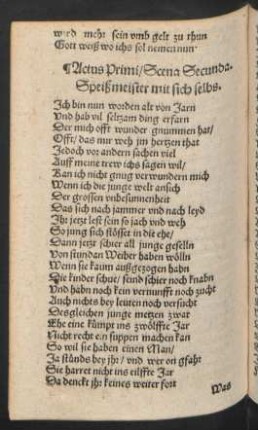 werd mehr sein vmb gelt zu thun
Gott weiß wo ichs sol nemen nun.
¶ Actus Primi/ Scena Secunda.
Speißmeister mit sich selbs.
Ich bin nun worden alt von Jarn
Vnd hab vil seltzam ding erfarn
Der mich offt wunder gnummen hat/
Offt/ das mir weh im hertzen that
Jedoch vor andern sachen viel
Auff meine trew ichs sagen wil/
Kan ich nicht gnug verwundern mich
Wenn ich die junge welt ansich
Der grossen vnbesunnenheit
Das sich nach jammer vnd nach leyd
Jhr jetz lest sein so jach vnd weh
So jung sich stösset in die ehe/
Dann jetz schier all junge geselln
Von stundan Weiber haben wölln
Wenn sie kaum außgezogen habn
Die kinder schue/ seind schier noch knabn
Vnd habn noch kein vernunfft noch zucht
Auch nichts bey leuten noch versucht
Desgleichen junge metzen zwar
Ehe eine kümpt ins zwölffte Jar
Nicht recht ein suppen machen kan
So wil sie haben einen Man/
Ja stünds bey jhr/ vnd wer on gfahr
Sie harret nicht ins eilffte Jar
Da denckt jhr keines weiter fort
Was